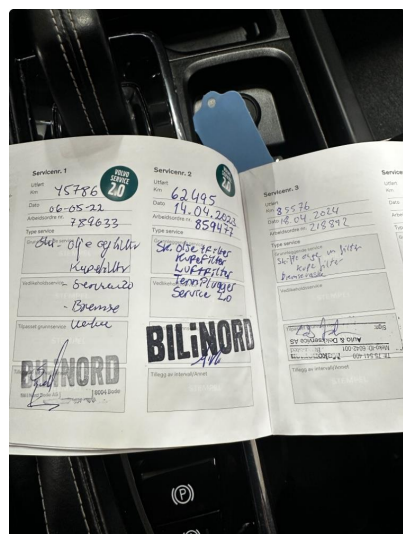 Servicenr. 1
VOLVO
SERVICE
2.0
Utført
Km 45786
Dato 06-05-22
Arbeidsordre nr. 789633
Type service
Skr. olje og filter
Kupefilter
- Service 2.0
- Bremse
BILiNORD
8004 Bodø
Servicenr. 2
2.0
Utført
Km 62495
Dato 14.04.2023
Arbeidsordre nr. 859477
Type service
Sk. olje + filter
Kupefilter
Luftfilter
Tennplugger
Service 2.0
BILiNORD
Tillegg av intervall/Annet
Servicenr. 3
Utført
Km 85576
Dato 18.04.2024
Arbeidsordre nr. 218892
Type service
Grunnleggende service
Skifte olje m filter
Kupe filter
Bremsevæske
Vedlikeholdsservice
Sign
Auto & Dekkservice AS
Tillegg av intervall/Annet
Service